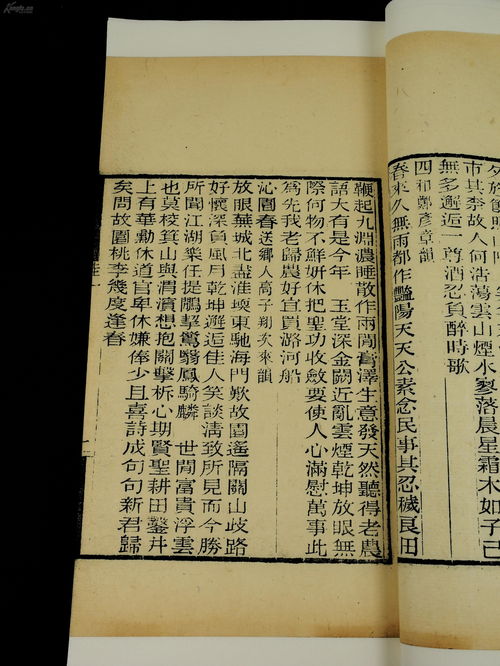 市其李故人何沽蕩雲山煙水寥落晨星霜木如予已
無多邂逅一尊酒忍負醉時歌
四和鄭彥章韻
春來久無雨都作豔陽天天公素念民事其忍穢良田
鞭起九淵濃睡散作兩間膏澤生意發天然聽得老農
語大有是今年 玉堂深金闕近亂雲煙乾坤放眼無
際何物不鮮妍休把聖功收斂要使人心滿慰萬事此
爲先我老歸農好宜買潞河船
沁園春送鄉人高子翔次來韻
放眼蕪城北盡淮堧東馳海門歎故園遙隔關山歧路
好懷深負風月乾坤邂逅佳人笑談清致所見而今勝
所聞江湖樂任提鵰擊鶚翳鳳騎麟 世間富貴浮雲
也莫校箕山與渭濱想抱關擊柝心期賢聖耕田鑿井
上有華勳休道官卑休嫌俸少且喜詩成句句新君歸
矣問故園桃李幾度逢春